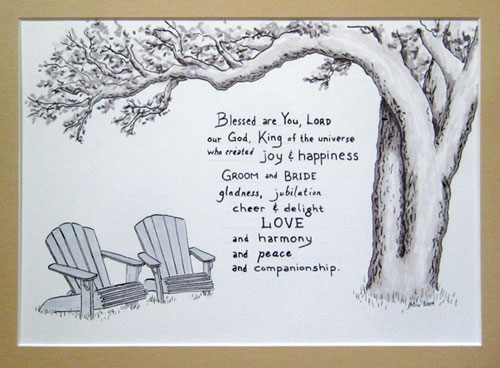 Blessed are You, LORD
our God, King of the universe
who created joy & happiness
GROOM and BRIDE
gladness, jubilation
cheer & delight
LOVE
and harmony
and peace
and companionship.